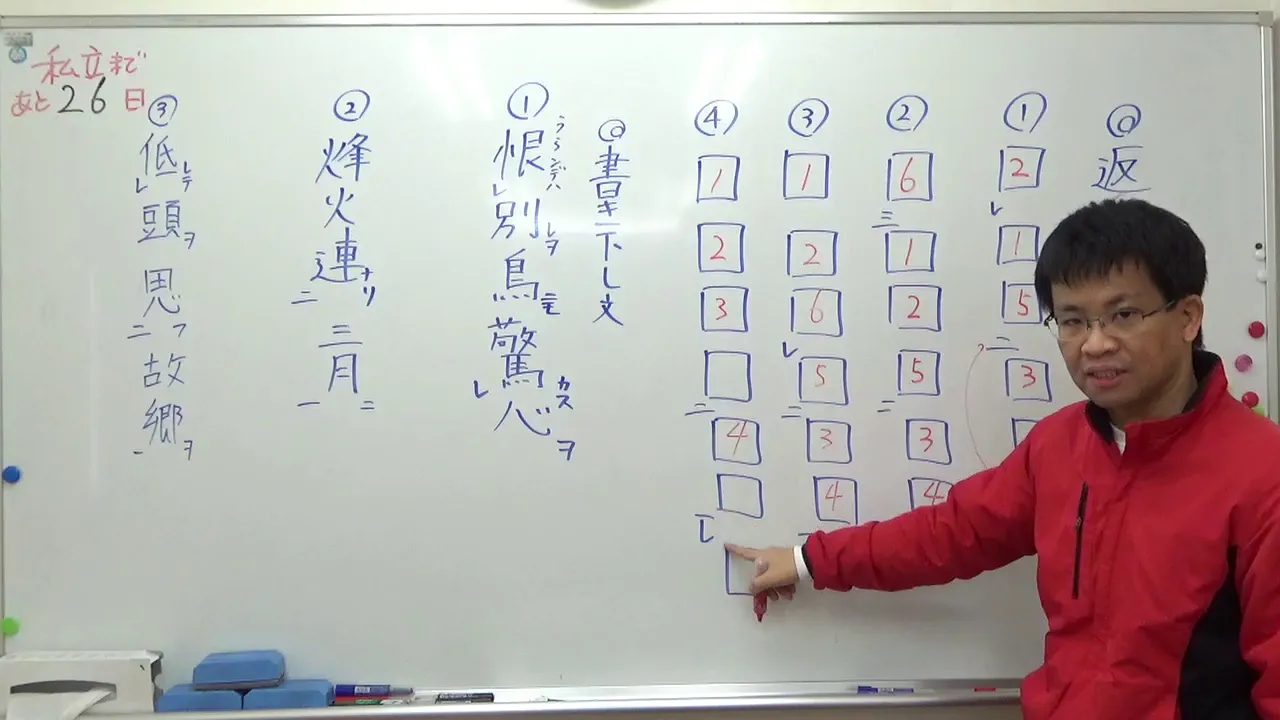 私立まで
あと26日
◎返
① 2レ 1 5二 3
② 6三 1 2 5二 3 4
③ 1 2 6レ 5二 3 4
④ 1 2 3 二 4 レ
◎書き下し文
①恨うらンデハレ別レヲ鳥ニモ驚カスレ心ヲ
②烽火連ナリ二三月ニ一
③低レテレ頭ヲ思フ二故郷ヲ一